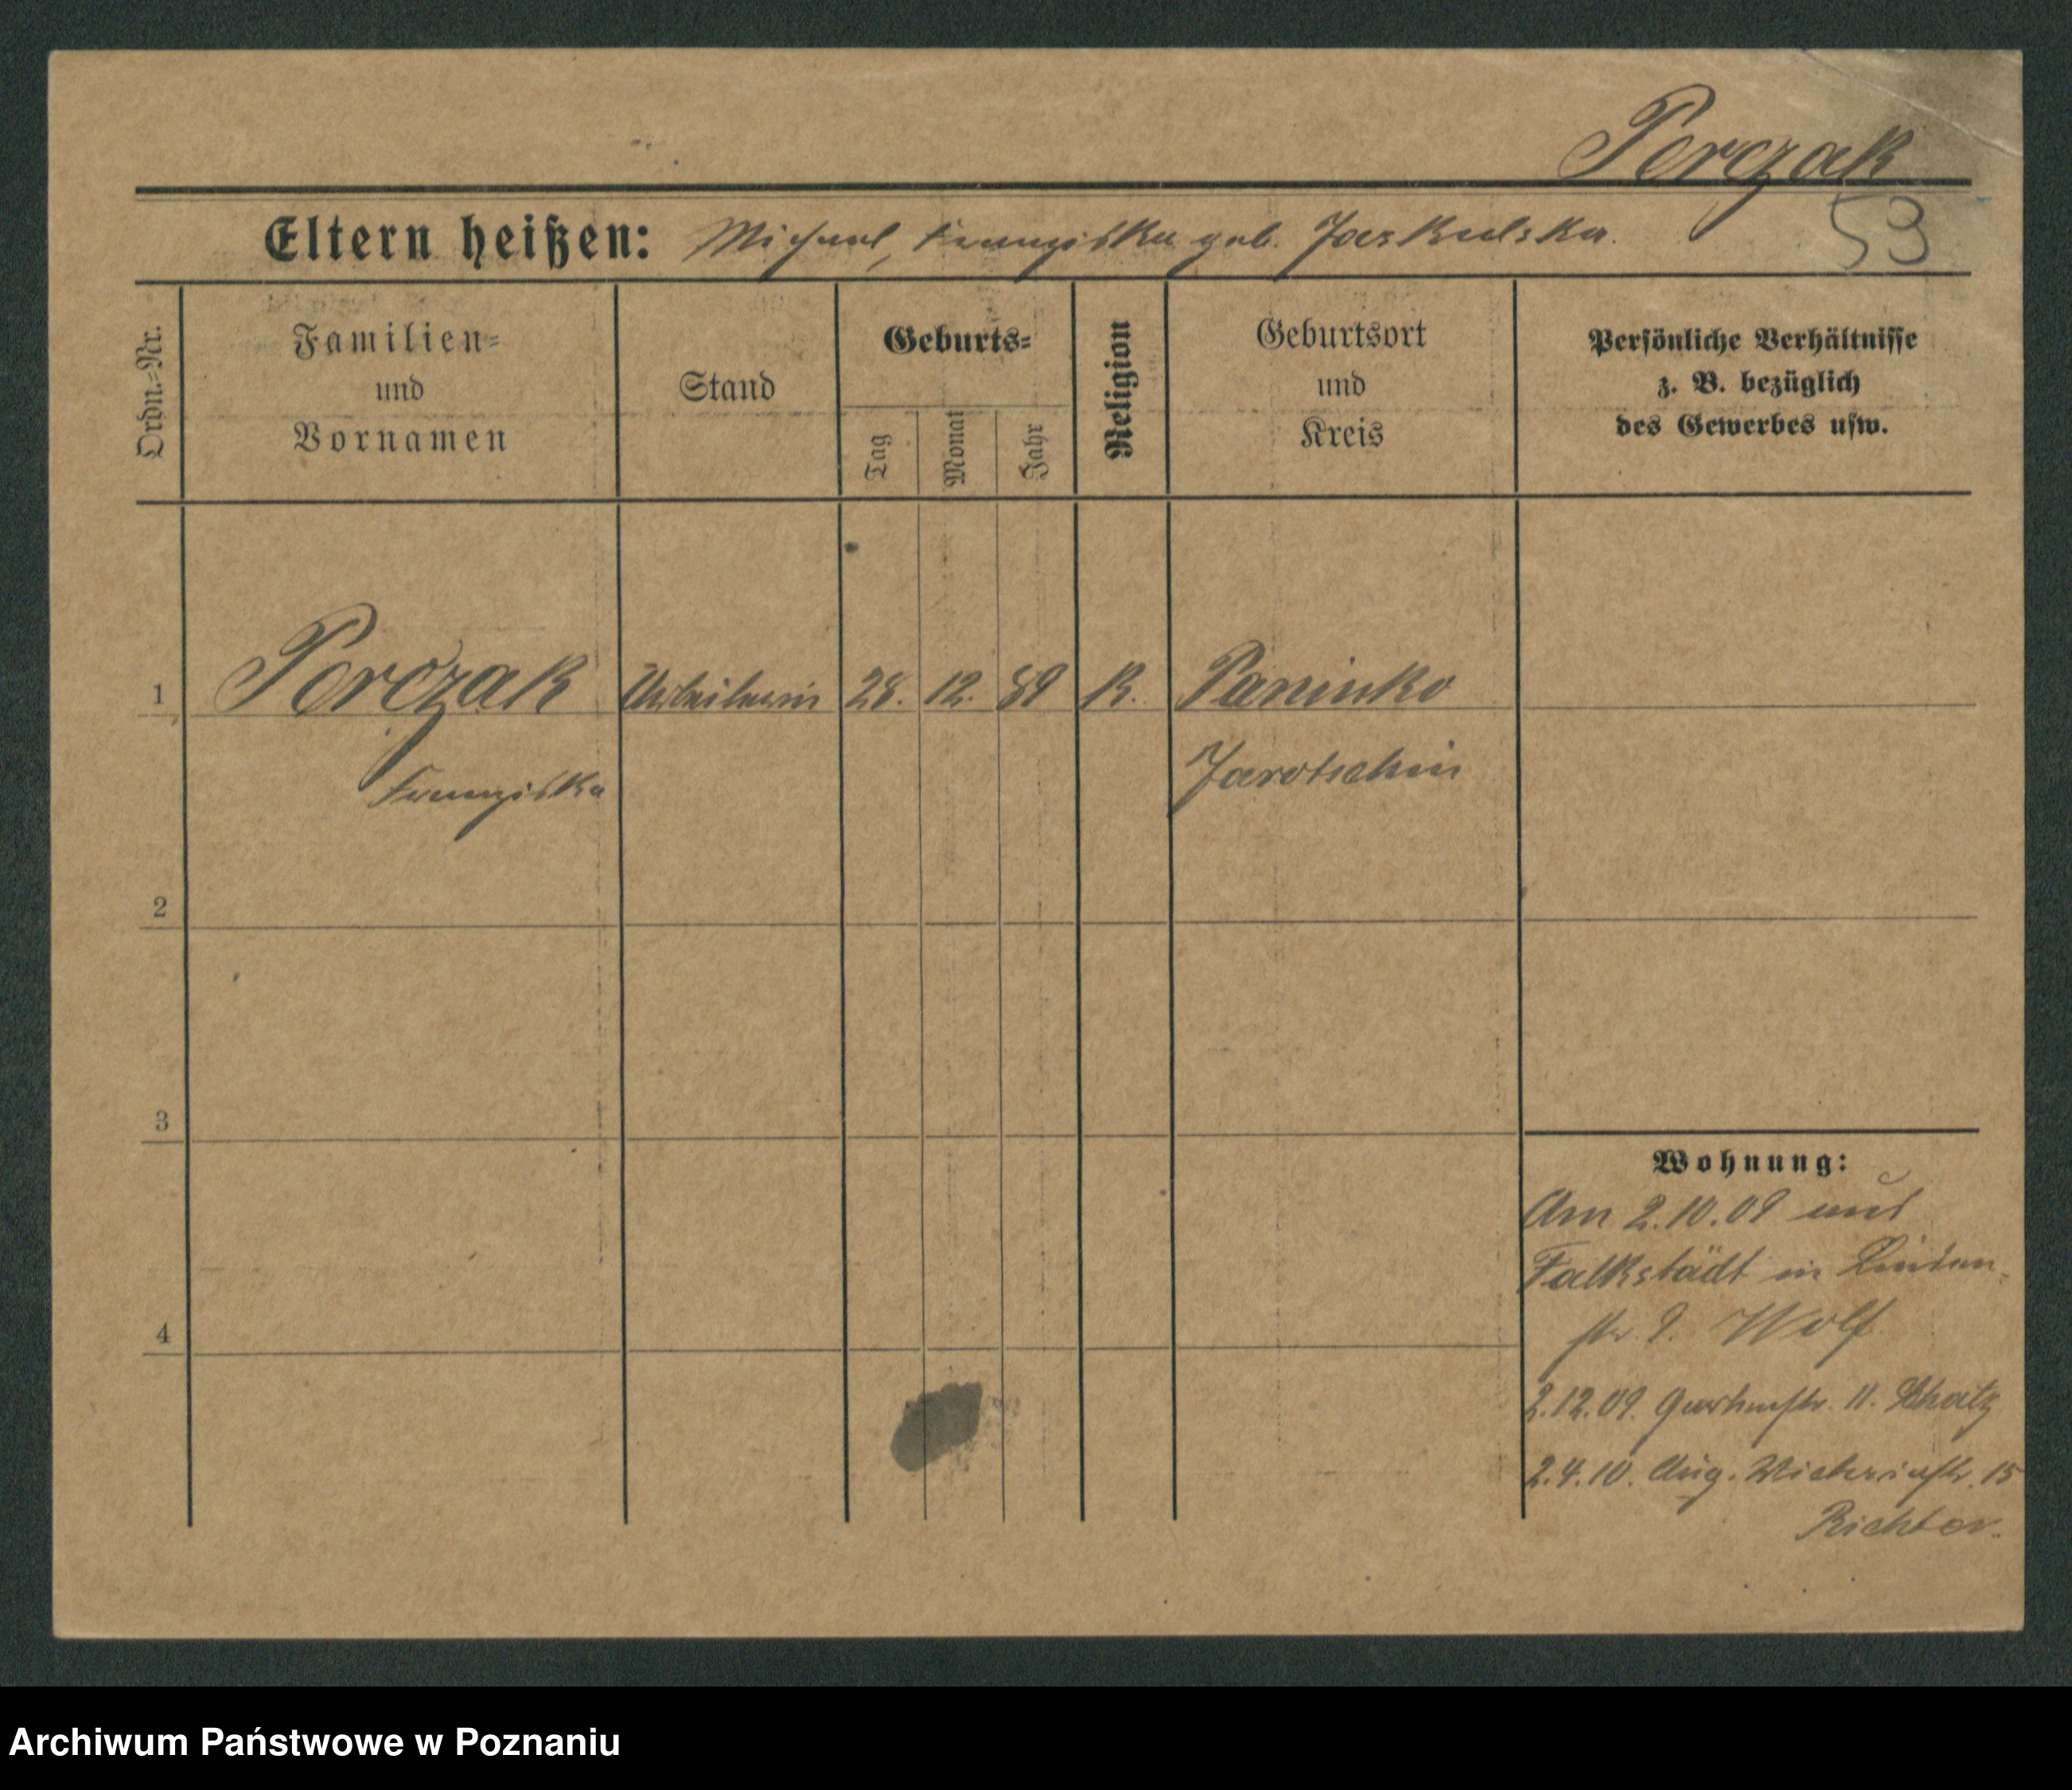 Perczak
53
Eltern heißen: Michael, Franziska geb. Jaskulska.
Ordn.=Nr.
Familien=
und
Vornamen
Stand
Geburts=
Tag
Monat
Jahr
Religion
Geburtsort
und
Kreis
Persönliche Verhältnisse
z. B. bezüglich
des Gewerbes usw.
1 Perczak Arbeiterin 28. 12. 89 K. Panienka
Franziska Jarotschin
2
3
4
Wohnung:
Am 2.10.09 aus
Falkstädt in Linden-
str. 9. Wolf
2.12.09. Gartenstr. 11. Schatz
2.4.10. Aug. Victoriastr. 15
Richter.
Archiwum Państwowe w Poznaniu